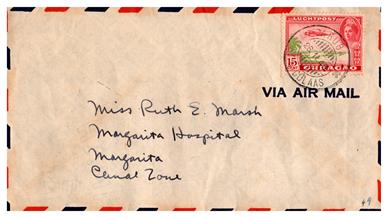 LUCHTPOST
15
CURAÇAO
VIA AIR MAIL
Miss Ruth E. Marsh
Margarita Hospital
Margarita
Canal Zone
49